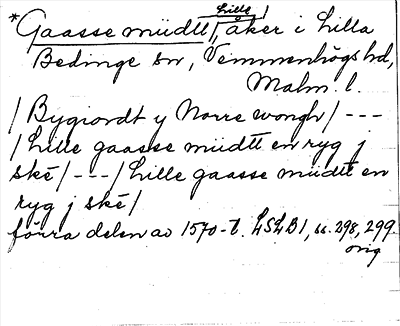 *Gaasse müdtt, Lille/ åker i Lilla
Bedinge sn, Vemmenhögs hd,
Malm. l.
/Bygiordt y Norre wongh/ ---
/Lille gaasse müdtt en ryg j
ské/ ---/Lille gaasse müdtt en
ryg j ské/
förra delen av 1570-t. LSLB1, ss. 298, 299.
orig